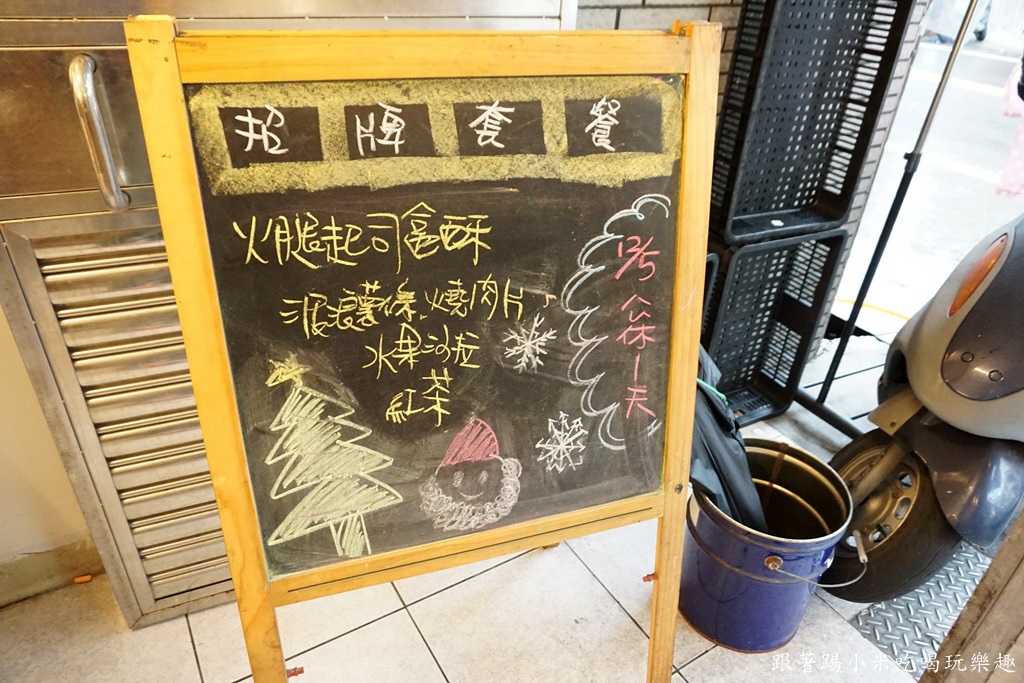 招牌套餐
火腿起司含酥
波浪薯條.燒肉片
水果沙拉
紅茶
12/5 公休1天
跟著踢小米吃喝玩樂趣